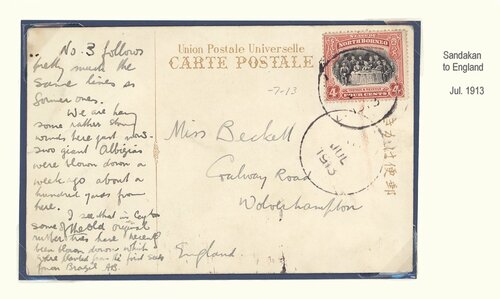 No. 3 follows
pretty much the
same lines as
former ones.
We are having
some rather strong
winds here just now.
Two giant Albizias
were blown down a
week ago about a
hundred yards from
here.
I see that in Ceylon
some of the old original
rubber trees have recently
been blown down which
were planted from the first seeds
from Brazil AB.
Union Postale Universelle
CARTE POSTALE
STATE OF
NORTH BORNEO
4 4
FOUR CENTS
-7-13
Miss Beckett
Coalway Road
Wolverhampton
England
JUL
1913
便郵
Sandakan
to England
Jul. 1913